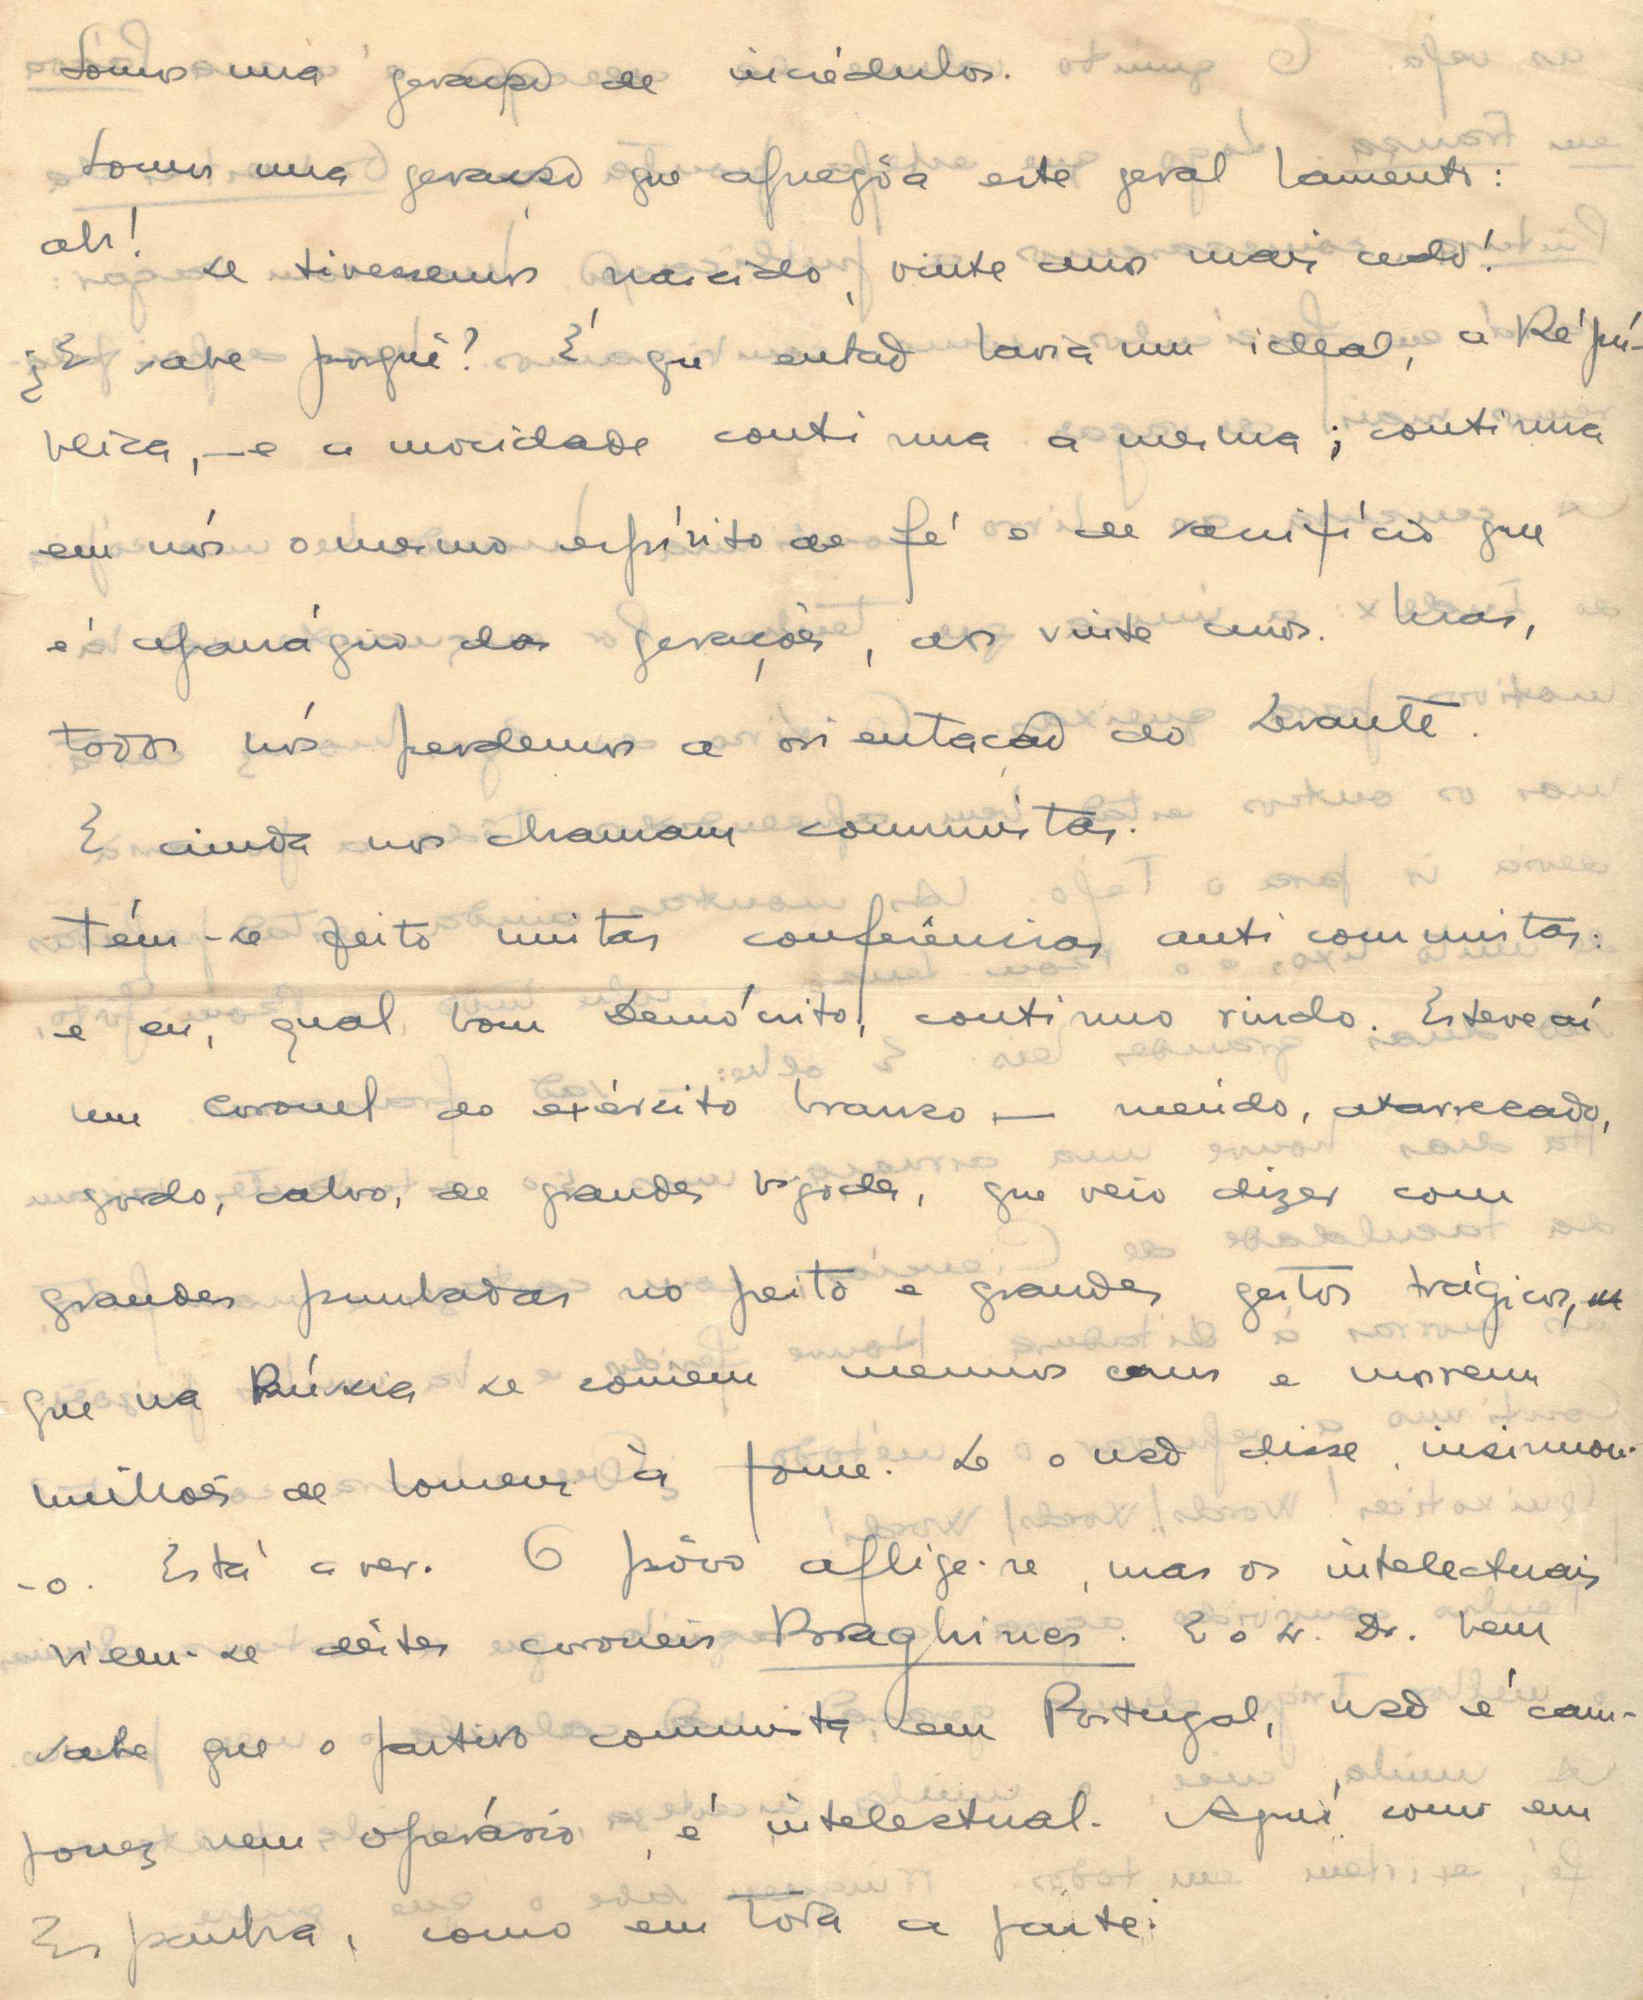 Somos uma geração de incrédulos.
Somos uma geração que apregôa este geral lamento:
ah! se tivessemos nascido, vinte anos mais cedo!
¿E sabe porquê? É que então havia um ideal, a Répú-
blica, — e a mocidade continua a mesma; continua
em nós o mesmo espírito de fé e de sacrifício que
é apanágio das gerações, aos vinte anos. Mas,
todos nós perdemos a orientação do Levante.
E ainda nos chamam comunistas.
Têm-se feito muitas conferências anti comunistas:
e eu, qual bom Demócrito, continuo rindo. Esteve aí
um coronel do exército branco — meúdo, atarrecado,
gordo, calvo, de grandes bigodes, que veio dizer com
grandes punhadas no peito e grandes gestos trágicos,
que na Rússia se comem meninos crus e morrem
milhões de homens à fome. Se o não disse, insinuou-
-o. Está a ver. O pôvo aflige-se, mas os intelectuais
riem-se dêstes coroneis Braghines. E o Sr. Dr. bem
sabe que o partido comunista, em Portugal, não é cam-
ponez nem operário, é intelectual. Aqui como em
Espanha, como em toda a parte: